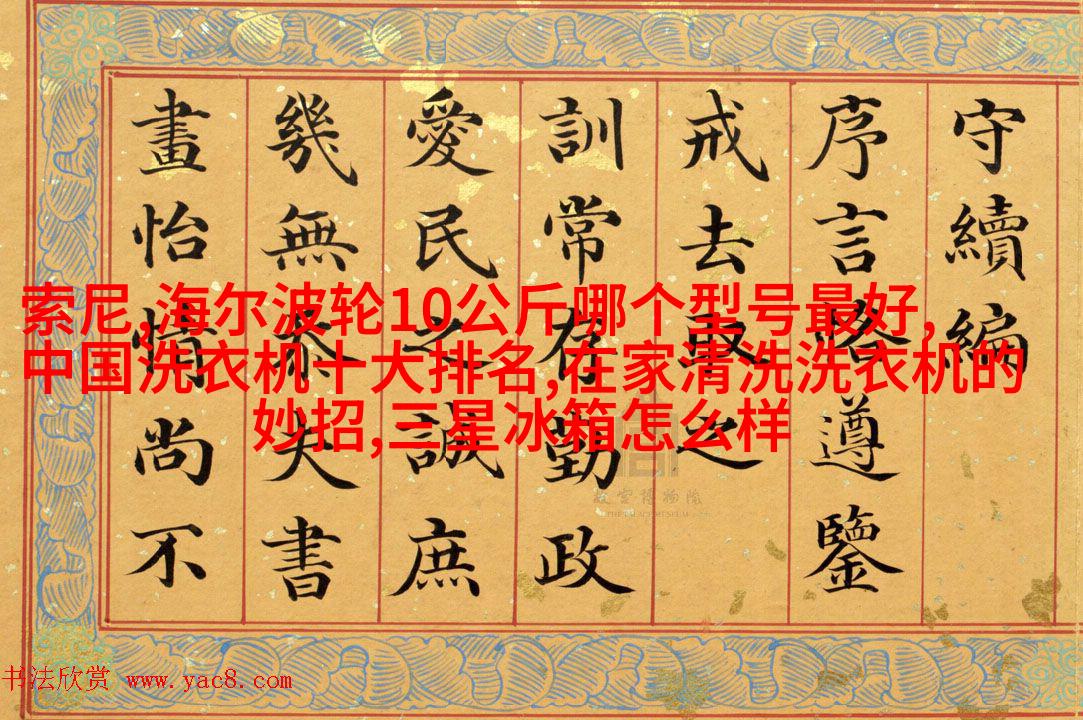 守續編
序言恪遵鑒
戒去取之
訓常存勤政
愛民之誠庶
幾無忝夫書
畫怡情尚不
索尼,海尔波轮10公斤哪个型号最好,
中国洗衣机十大排名,在家清洗洗衣机的
妙招,三星冰箱怎么样
故宫博物院
THE PALACE MUSEUM
书法欣赏 www.yac8.com